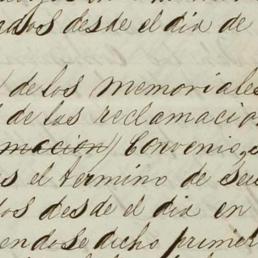 ados desde el dia de
de los memoriales
de las reclamacio
macion) Convenio, e
s el término de seis
dos desde el dia en
endose dicho primer